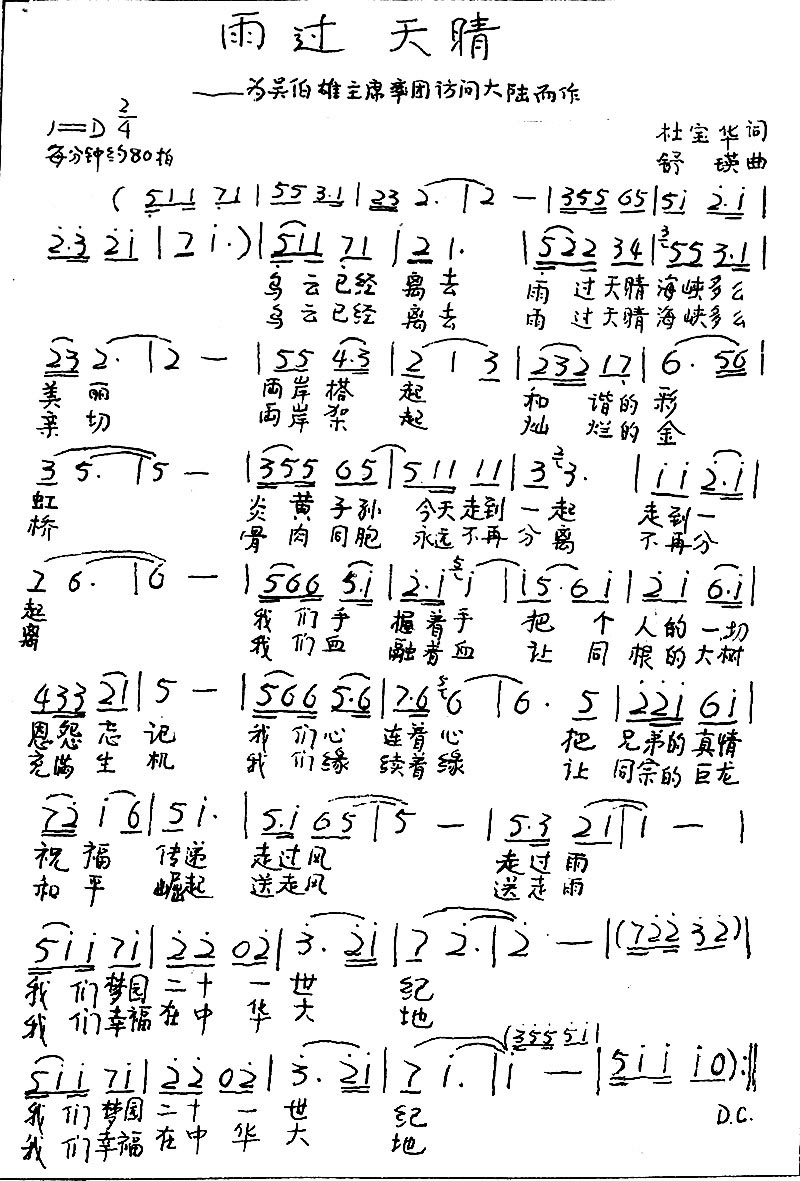 雨过 天晴
——为吴伯雄主席率团访问大陆而作
1=D 2/4
杜宝华 词
每分钟约80拍
舒 瑛 曲
( 5 1 1 7 1 | 5 5 3 . 1 | 2 3 2 . | 2 — | 3 5 5 6 5 | 5 i 2 . i |
2 . 3 2 i | 7 i . ) | 5 1 1 7 1 | 2 1 . | 5 2 2 3 4 | 5 5 3 . 1 |
乌 云 已经 离 去 雨 过 天晴 海峡 多么
乌 云 已经 离 去 雨 过 天晴 海峡 多么
2 3 2 . | 2 — | 5 5 4 . 3 | 2 1 3 | 2 3 2 1 7 | 6 . 5 6 |
美 丽 两岸 搭 起 和 谐的 彩
亲 切 两岸 架 起 灿 烂的 金
3 5 . | 5 — | 3 5 5 6 5 | 5 . 1 1 1 1 | 3 3 . | i i 2 . i |
虹 炎 黄 子孙 今天 走到 一 起 走到 一
桥 骨 肉 同胞 永远 不再 分 离 不再 分
7 6 . | 6 — | 5 6 6 5 . i | 2 . i i | i 5 . 6 i | 2 i 6 . i |
起 我 们 手 握着 手 把 个 人的 一切
离 我 们 血 融着 血 让 同 根的 大树
4 3 3 2 1 | 5 — | 5 6 6 5 . 6 | 7 . 6 6 | 6 . 5 | 2 2 i 6 i |
恩怨 忘 记 我 们 心 连着 心 把 兄弟的 真情
充满 生 机 我 们 缘 续着 缘 让 同宗的 巨龙
7 2 i 6 | 5 i . | 5 . i 6 5 | 5 — | 5 . 3 2 i | i — |
祝 福 传递 走过 风 走过 雨
和 平 崛起 送走 风 送走 雨
5 i i 7 i | 2 2 0 2 | 3 . 2 i | 7 2 . | 2 — | ( 7 2 2 3 2 ) |
我 们 梦圆 二 十 一 世 纪
我 们 幸福 在 中 华 大 地
( 3 5 5 5 i |
5 i i 7 i | 2 2 0 2 | 3 . 2 i | 7 i . | i — | 5 i i i 0 ) :||
我 们 梦圆 二 十 一 世 纪 D.C.
我 们 幸福 在 中 华 大 地